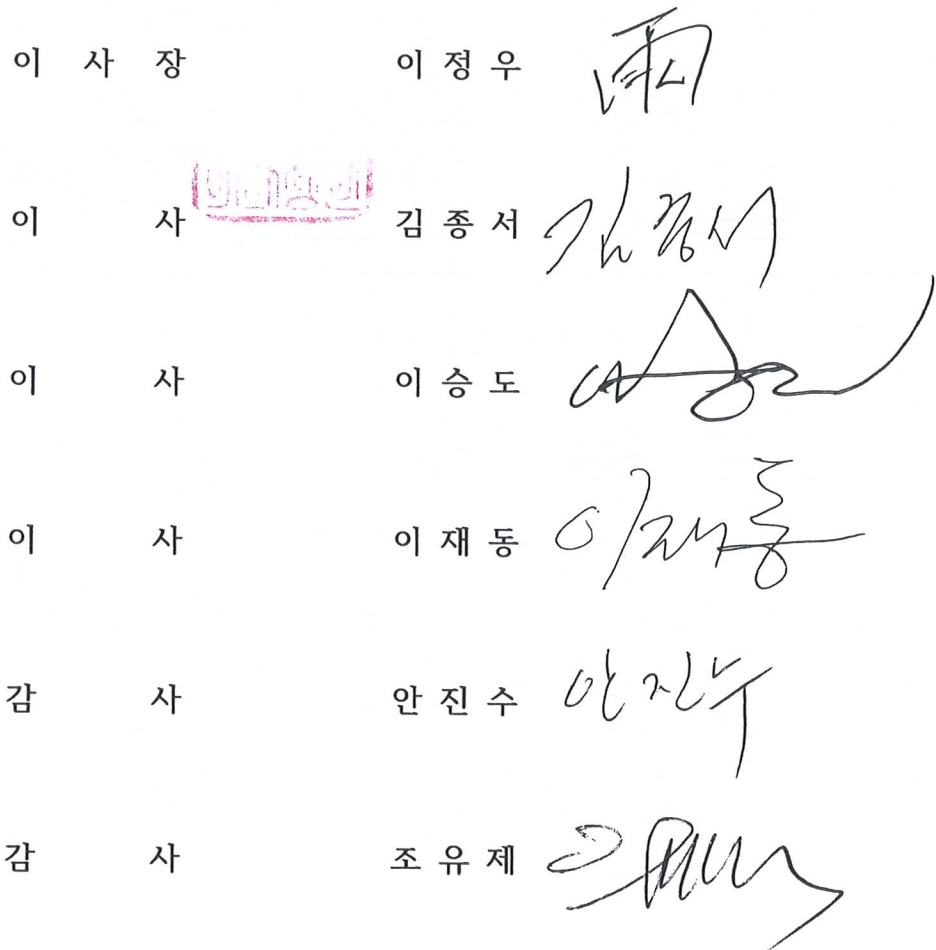 이 사 장 이 정 우 雨
이 사 김 종 서 김종서
이 사 이 승 도
이 사 이 재 동 이재동
감 사 안 진 수 안진수
감 사 조 유 제